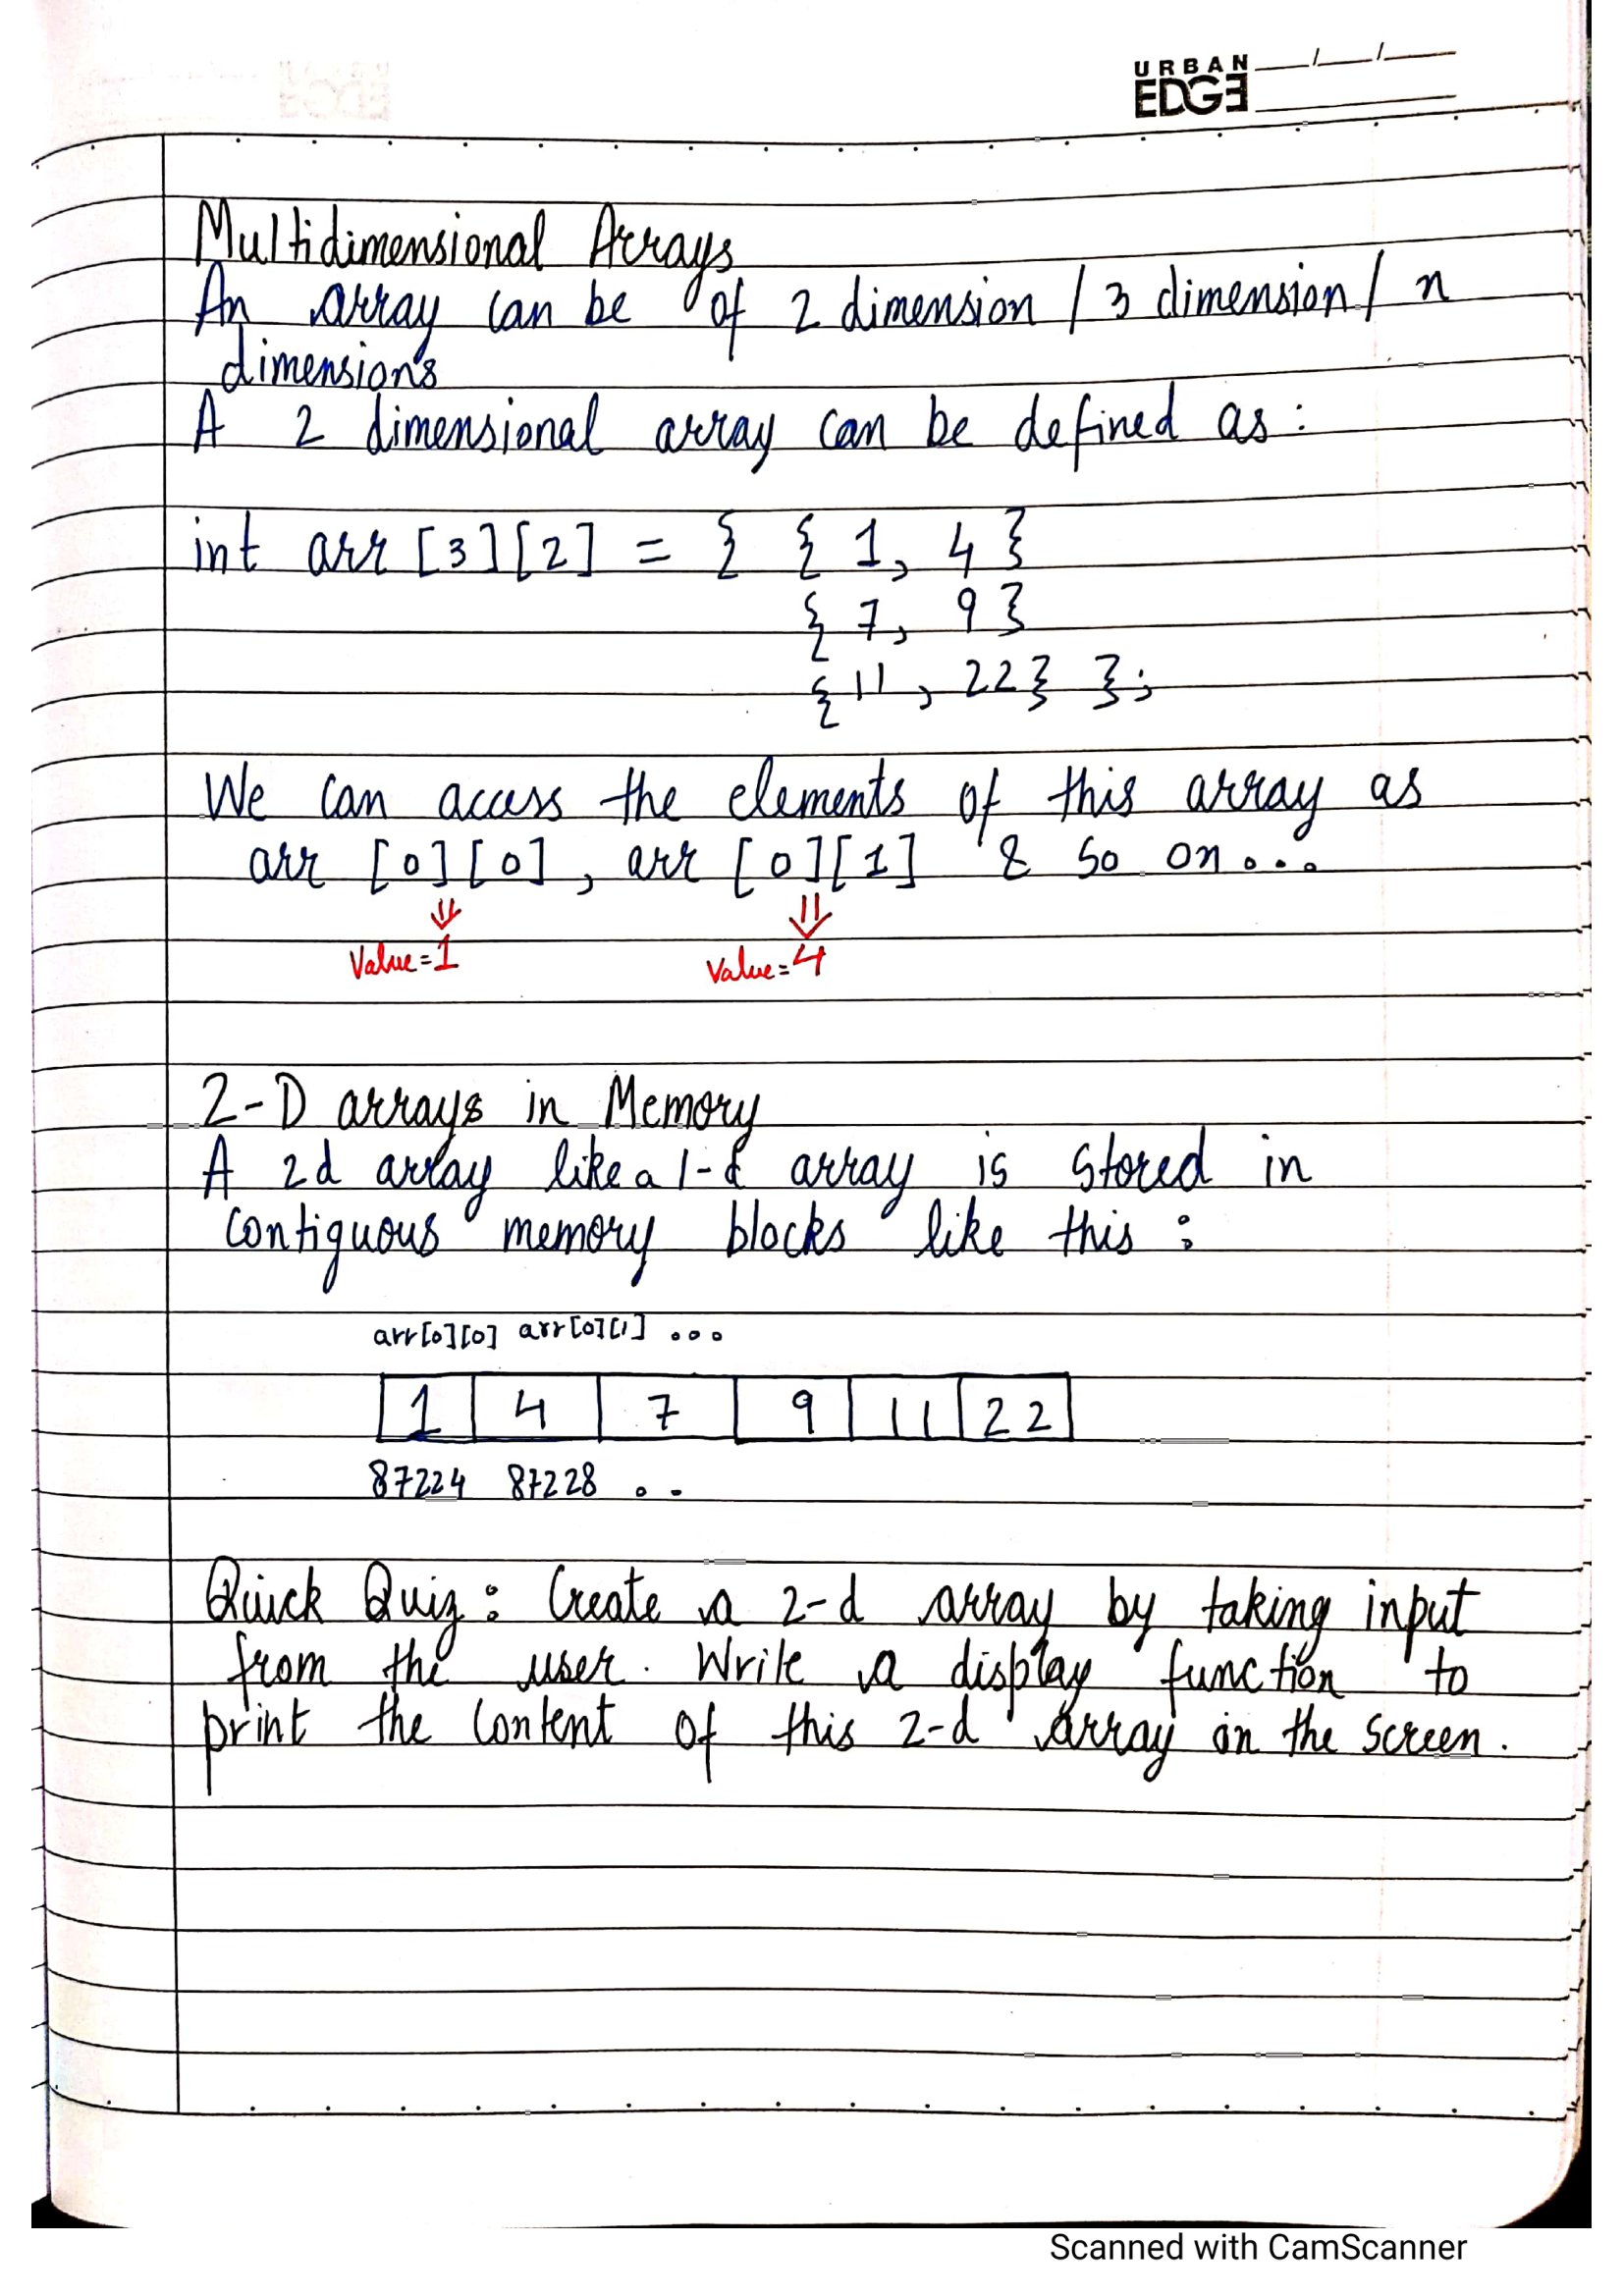 URBAN
EDGE
Multidimensional Arrays
An array can be of 2 dimension / 3 dimension / n
dimensions
A 2 dimensional array can be defined as :
int arr [3][2] = { { 1, 4 }
{ 7, 9 }
{ 11, 22 } };
We can access the elements of this array as
arr [0][0], arr [0][1] & so on...
Value=1 Value=4
2-D arrays in Memory
A 2d array like a 1-d array is stored in
contiguous memory blocks like this :
arr[0][0] arr[0][1] ...
1 4 7 9 11 22
87224 87228 ..
Quick Quiz : Create a 2-d array by taking input
from the user. Write a display function to
print the content of this 2-d array on the screen.
Scanned with CamScanner